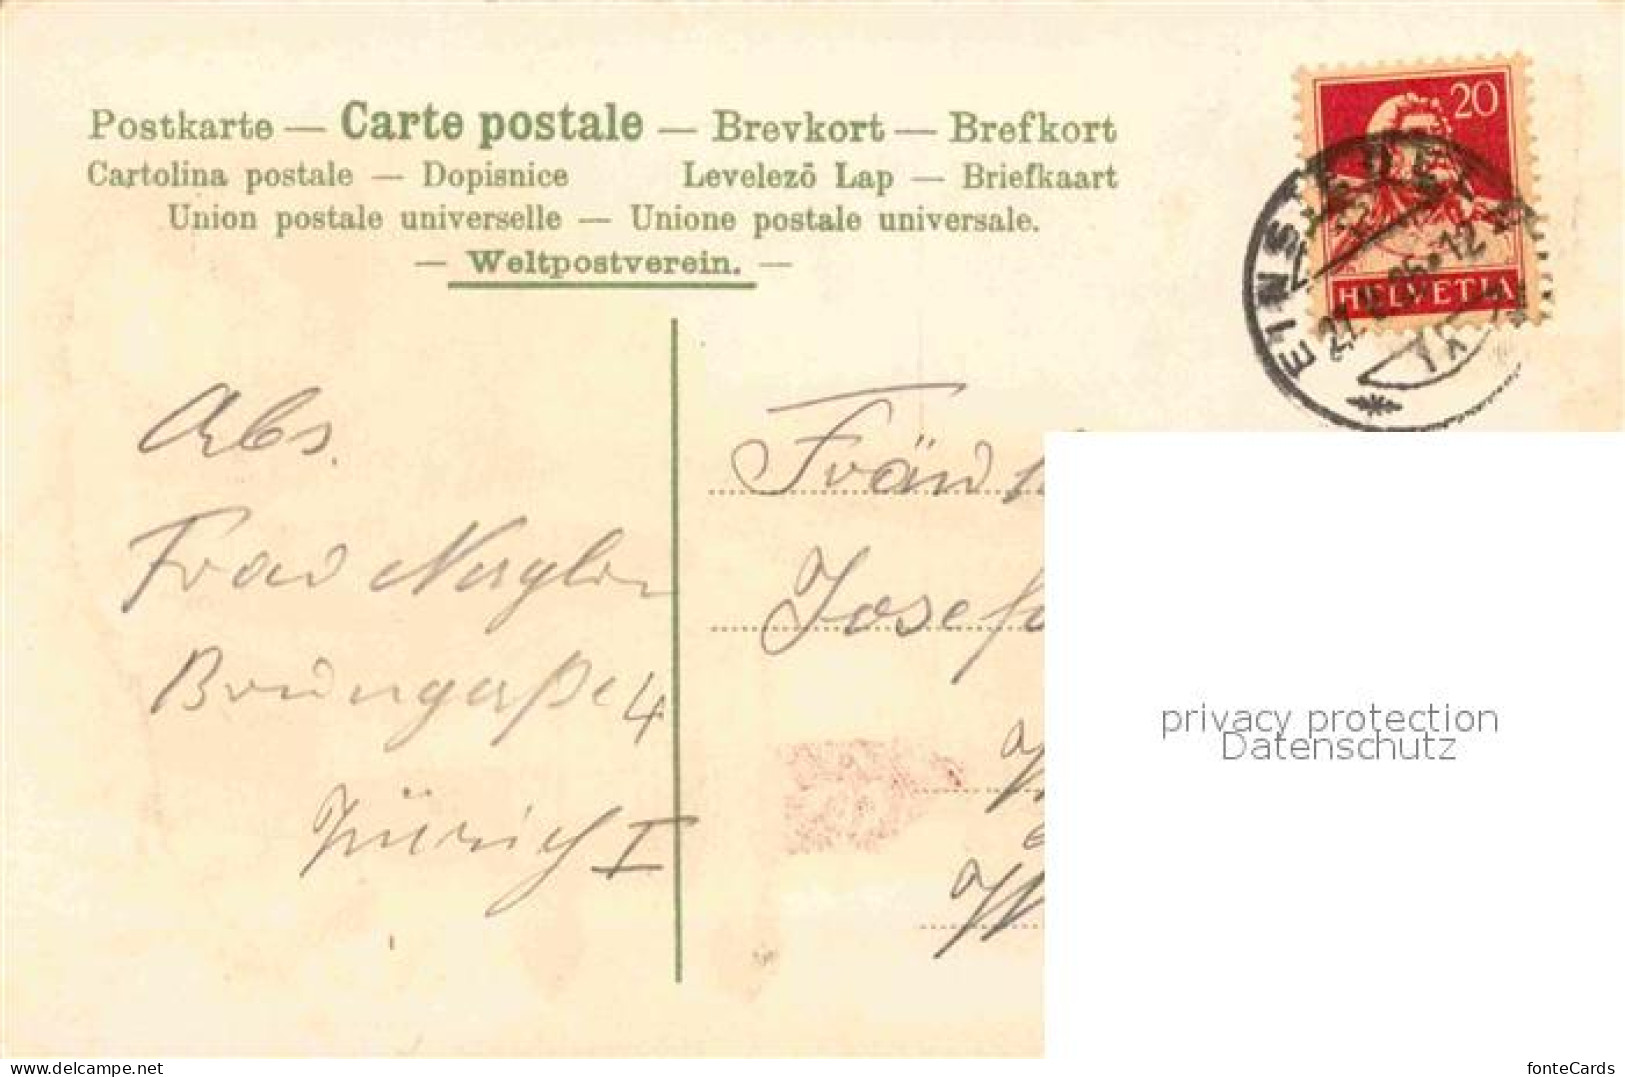 Postkarte — Carte postale — Brevkort — Brefkort
Cartolina postale — Dopisnice Levelezõ Lap — Briefkaart
Union postale universelle — Unione postale universale.
— Weltpostverein. —
20
HELVETIA
EINSIEDELN
Abs.
Frau
4
Zürich I
Josef
privacy protection
Datenschutz
www.delcampe.net
fonteCards